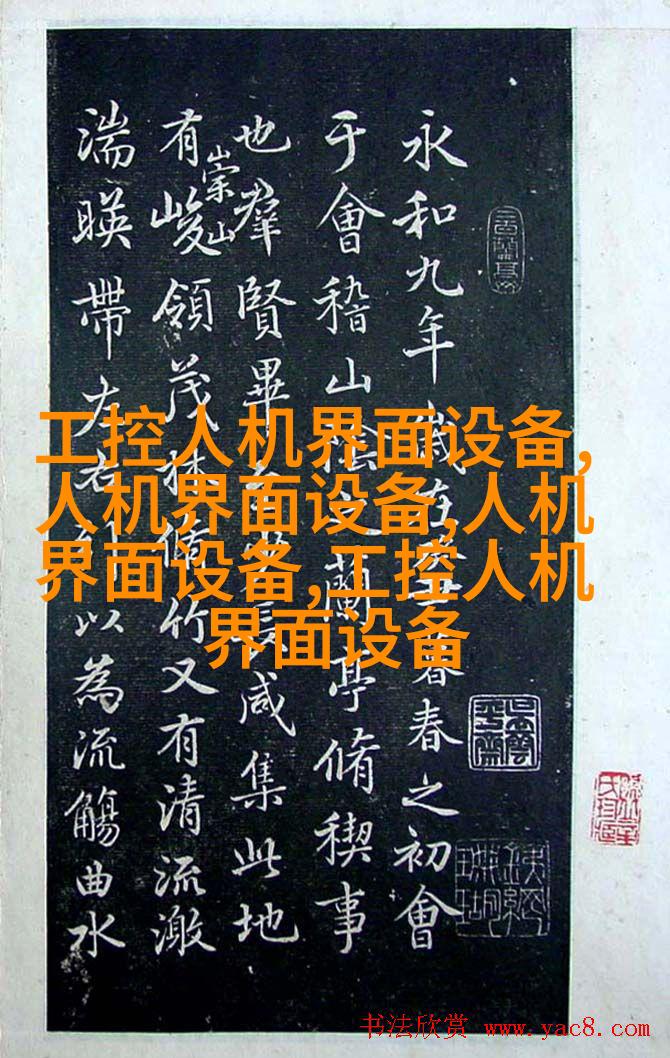 永和九年歲在暮春之初會
于會稽山陰之蘭亭脩稧事
也羣賢畢長咸集此地
有崇山峻領茂林脩竹又有清流激
湍暎帶左右以為流觴曲水
工控人机界面设备,
人机界面设备,人机
界面设备,工控人机
界面设备
书法欣赏 www.yac8.com